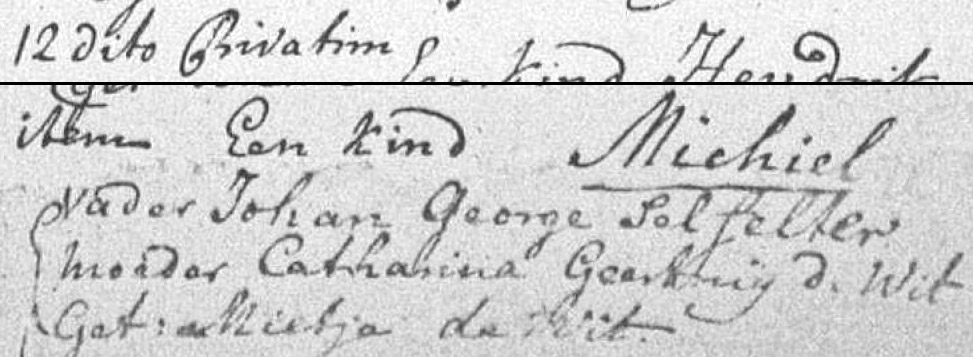 12 dito Privatim
Een Kind Hendrik
item Een Kind Michiel
Vader Johan George Selfelter
Moeder Catharina Geertruij d. Wit
Get: Mietje de Wit.